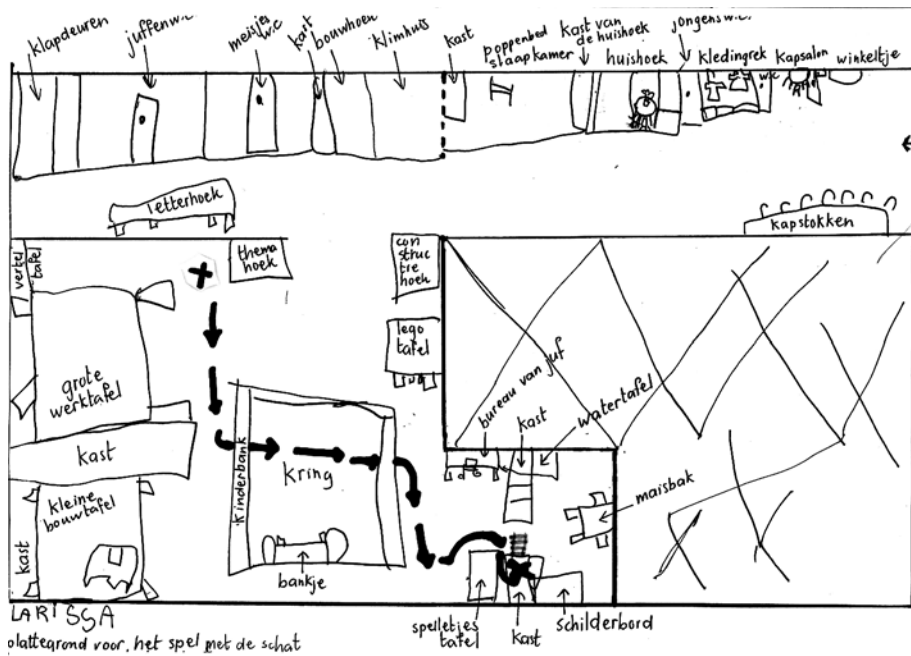 klapdeuren
juffenw.c
meisjes
w.c
kast
bouwhoek
klimhuis
kast
poppenbed
slaapkamer
kast van
de huishoek
huishoek
jongensw.c.
kledingrek
w.c
kapsalon
winkeltje
letterhoek
kapstokken
vertel
tafel
thema
hoek
con
struc
tie
hoek
lego
tafel
grote
werktafel
kast
bureau van juf
kast
watertafel
kinderbank
kring
maisbak
kleine
bouwtafel
kast
bankje
spelletjes
tafel
kast
schilderbord
LARISSA
plattegrond voor, het spel met de schat